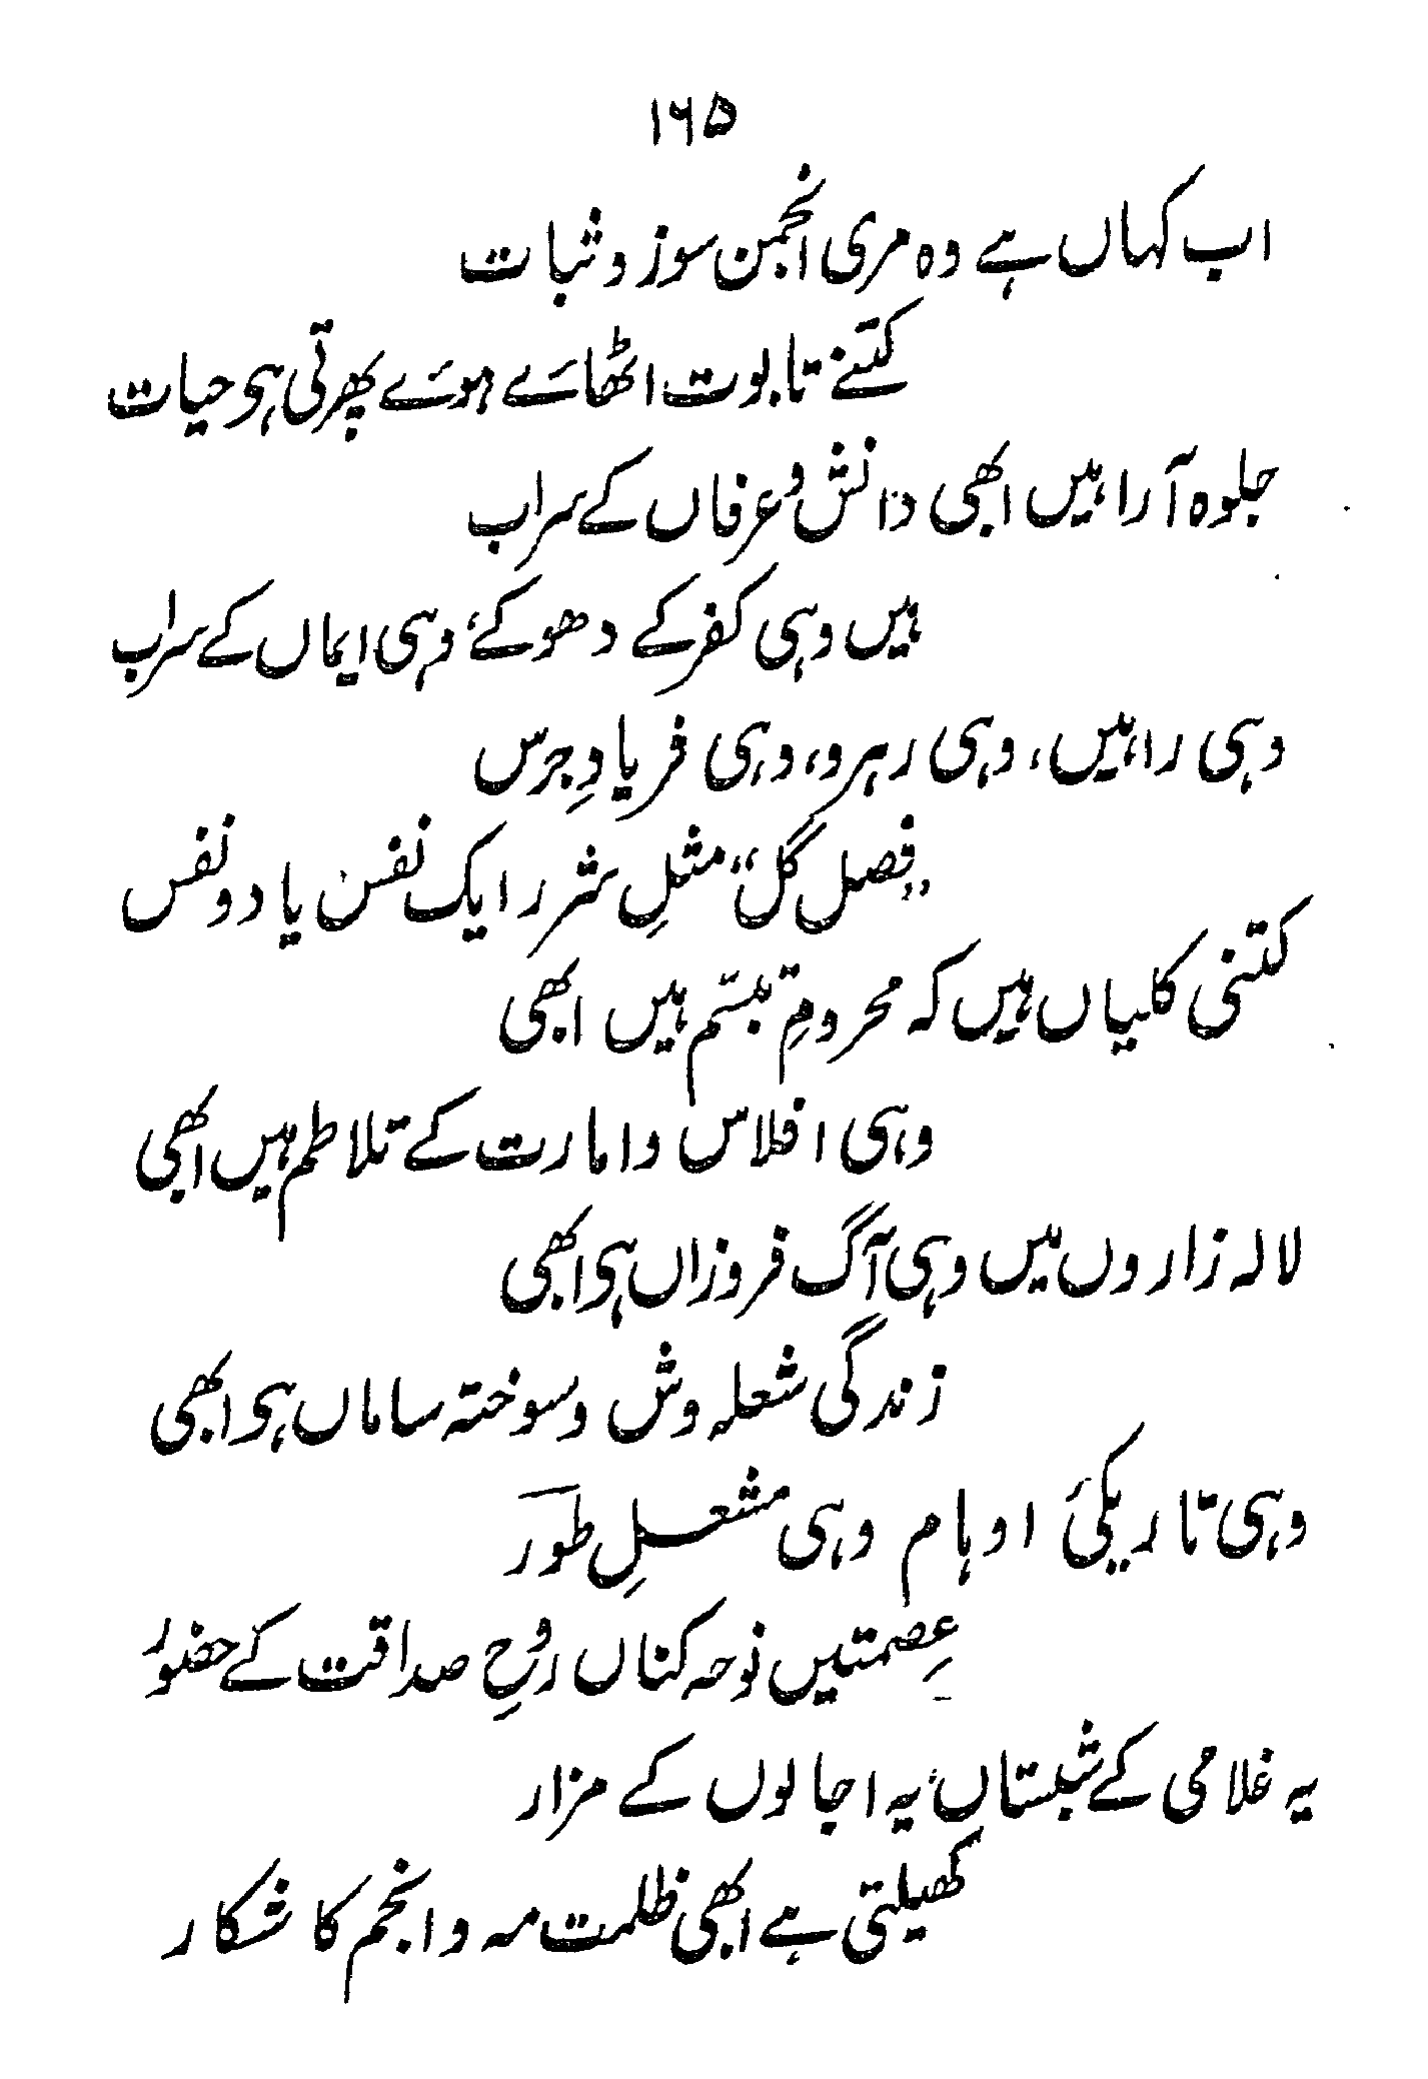 ۱۶۵
اب کہاں ہے وہ مری انجمن سوز و ثبات
کتنے تابوت اٹھائے ہوئے پھرتی ہے حیات
جلوہ آرا ہیں ابھی دانش و عرفاں کے سراب
ہیں وہی کفر کے دھوکے، وہی ایماں کے سراب
وہی راہیں، وہی رہرو، وہی فریادِ جرس
"فصل گل" مثلِ شرر ایک نفس یا دو نفس
کتنی کلیاں ہیں کہ محرومِ تبسّم ہیں ابھی
وہی افلاس و امارت کے تلاطم ہیں ابھی
لالہ زاروں میں وہی آگ فروزاں ہے ابھی
زندگی شعلہ وش و سوختہ ساماں ہے ابھی
وہی تاریکیٔ اوہام وہی مشعلِ طور
عِصمتیں نوحہ کناں روحِ صداقت کے حضور
یہ غلامی کے شبستاں، یہ اجالوں کے مزار
کھیلتی ہے ابھی ظلمت مہ و انجم کا شکار